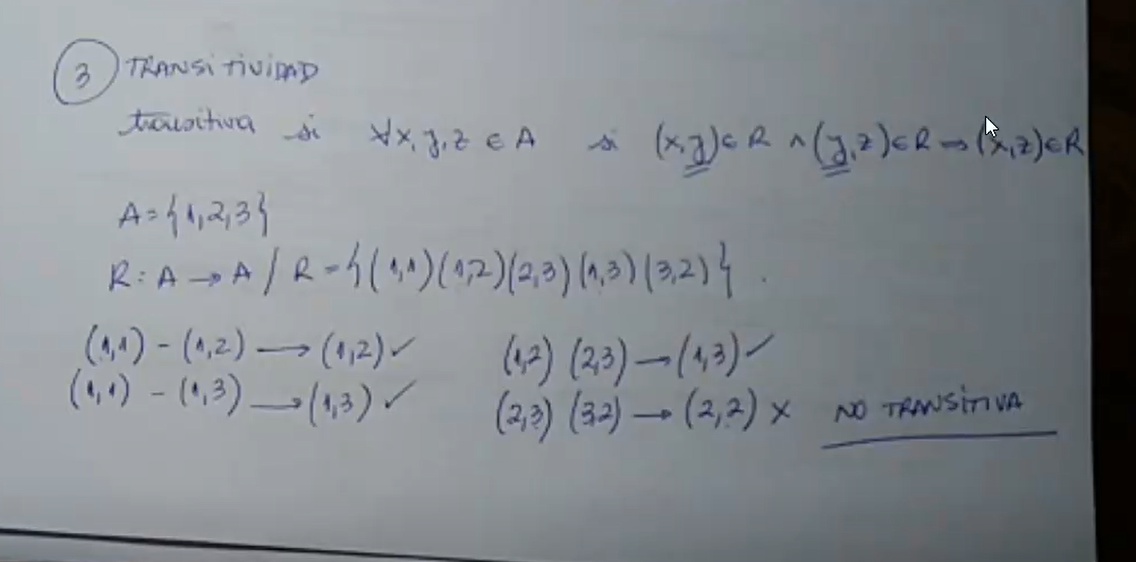 3 TRANSITIVIDAD
transitiva si ∀x,y,z ∈ A si (x,y)∈R ∧ (y,z)∈R → (x,z)∈R
A={1,2,3}
R: A → A / R = {(1,1)(1,2)(2,3)(1,3)(3,2)}.
(1,1) - (1,2) → (1,2) ✓
(1,1) - (1,3) → (1,3) ✓
(1,2) (2,3) → (1,3) ✓
(2,3) (3,2) → (2,2) x NO TRANSITIVA